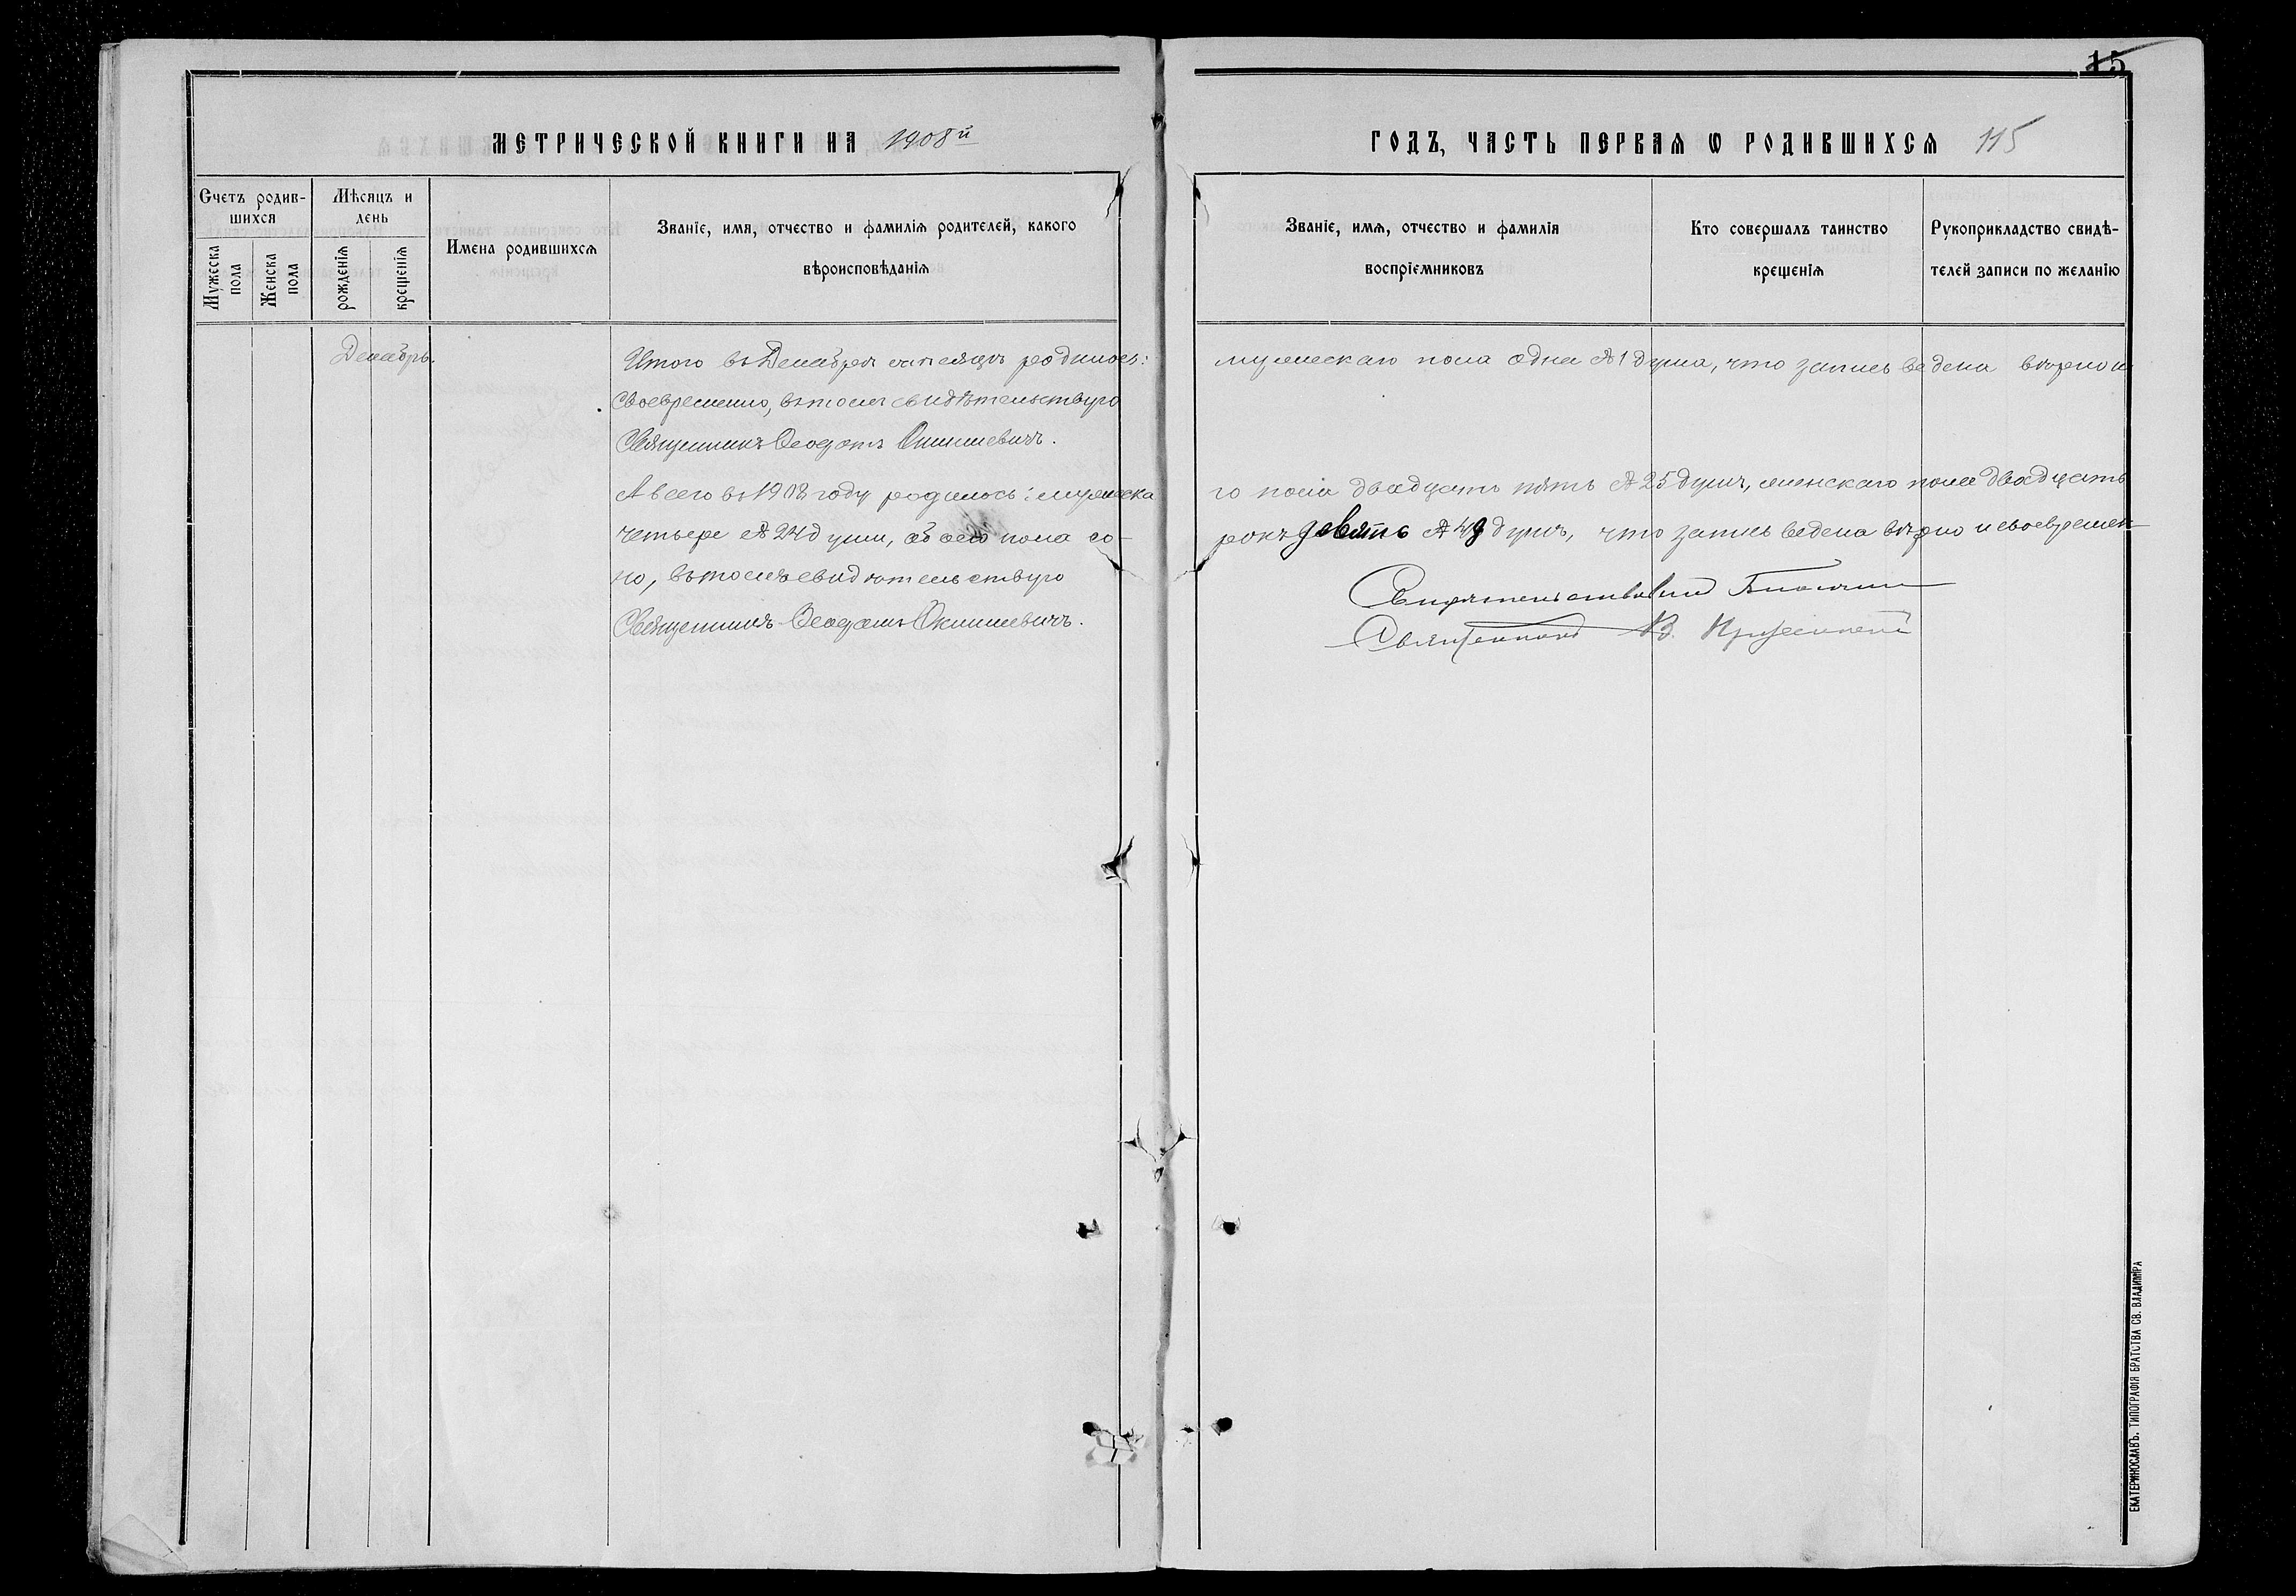 15
МЕТРИЧЕСКОЙ КНИГИ НА 1908й
ГОДЪ, ЧАСТЬ ПЕРВАЯ Ѡ РОДИВШИХСЯ 115
Счетъ родив-
шихся
Мужеска пола
Женска пола
Мѣсяцъ и
день
рожденія
крещенія
Имена родившихся
Званіе, имя, отчество и фамилія родителей, какого
вѣроисповѣданія
Званіе, имя, отчество и фамилія
воспріемниковъ
Кто совершалъ таинство
крещенія
Рукоприкладство свидѣ-
телей записи по желанію
Декабрь.
Итого въ Декабрѣ мѣсяцѣ родилось: мужескаго пола одна А 1 душа, что запись ведена вѣрно и
своевременно, въ томъ свидѣтельствую
Священникъ Ѳеодотъ
А всего въ 1908 году родилось: мужеска го пола двадцать пять А 25 душъ, женскаго пола двадцать
четыре А 24 души, обоего пола со- рокъ девять А 49 душъ, что запись ведена вѣрно и своевремен-
но, въ томъ свидѣтельствую
Священникъ Ѳеодотъ
Священникъ В.
ЕКАТЕРИНОСЛАВЪ. ТИПОГРАФІЯ БРАТСТВА СВ. ВЛАДИМІРА